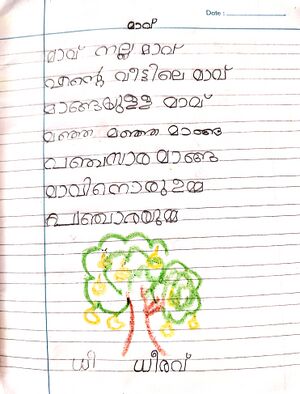 Date :
മാവ്
മാവ് നല്ല മാവ്
എന്റെ വീട്ടിലെ മാവ്
മാങ്ങയുള്ള മാവ്
മഞ്ഞ മഞ്ഞ മാങ്ങ
പഞ്ചസാര മാങ്ങ
മാവിനൊരുമ്മ
പഞ്ചാരയുമ്മ
ധീ ധീരവ്